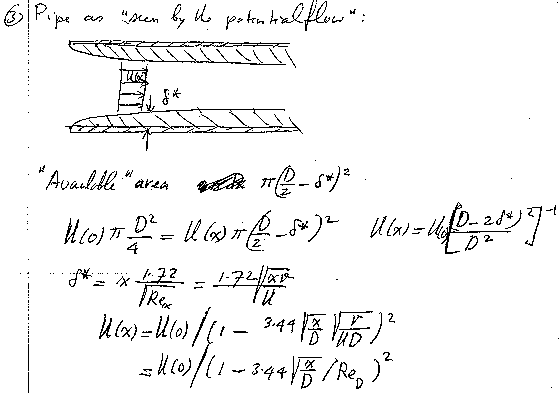 ③ Pipe as "seen by the potential flow":
U(x)
δ*
"Available" area π(D/2 - δ*)²
U(0) π D²/4 = U(x) π(D/2 - δ*)² U(x) = U(0)[(D-2δ*)²/D²]⁻¹
δ* = x 1.72/√Reₓ = 1.72 √(xν/U)
U(x) = U(0)/(1 - 3.44 √(x/D) √(ν/UD))²
= U(0)/(1 - 3.44 √(x/D) /Re_D)²